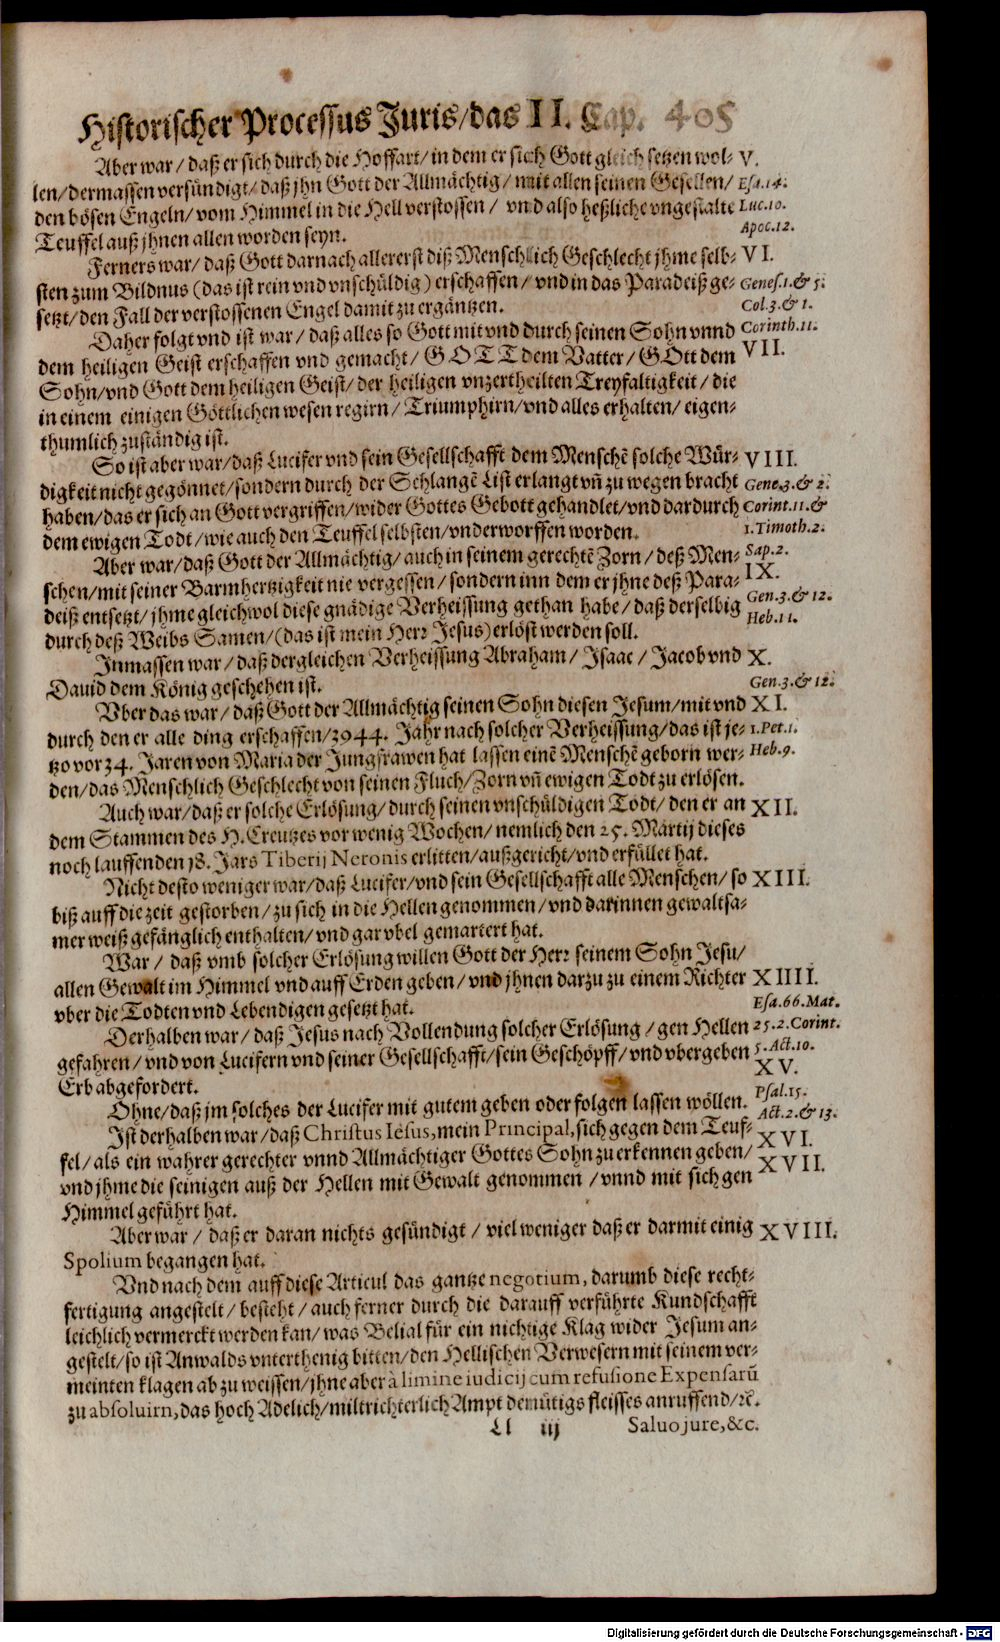 Historischer Processus Juris/das II. Cap. 405
Aber war/ daß er sich durch die Hoffart/ in dem er sich Gott gleich setzen wol⸗ V.
len/dermassen versündigt/daß jhn Gott der Allmächtig/ mit allen seinen Gesellen/ Esa.14.
den bösen Engeln/ vom Himmel in die Hell verstossen/ vnd also heßliche vngestalte Luc.10.
Teuffel auß jhnen allen worden seyn. Apoc.12.
Ferners war/ daß Gott darnach allererst diß Menschlich Geschlecht jhme selb⸗ VI.
sten zum Bildnus (das ist rein vnd vnschüldig) erschaffen/ vnd in das Paradeiß ge⸗ Genes.1.& 5.
setzt/den Fall der verstossenen Engel damit zu ergäntzen. Col.3.& 1.
Daher folgt vnd ist war/ daß alles so Gott mit vnd durch seinen Sohn vnnd Corinth.11.
dem heiligen Geist erschaffen vnd gemacht/ GOTT dem Vatter/ GOtt dem VII.
Sohn/vnd Gott dem heiligen Geist/ der heiligen vnzertheilten Treyfaltigkeit/ die
in einem einigen Göttlichen wesen regirn/ Triumphirn/vnd alles erhalten/ eigen⸗
thumlich zuständig ist.
So ist aber war/daß Lucifer vnd sein Gesellschafft dem Menschẽ solche Wür⸗ VIII.
digkeit nicht gegönnet/sondern durch der Schlangẽ List erlangt vñ zu wegen bracht Gene.3.& 2.
haben/das er sich an Gott vergriffen/wider Gottes Gebott gehandlet/vnd dardurch Corint.11.&
dem ewigen Todt/ wie auch den Teuffel selbsten/vnderworffen worden. 1.Timoth.2.
Aber war/daß Gott der Allmächtig/ auch in seinem gerechtẽ Zorn/ deß Men⸗ Sap.2.
schen/mit seiner Barmhertzigkeit nie vergessen/ sondern inn dem er jhne deß Para⸗ IX.
deiß entsetzt/ jhme gleichwol diese gnädige Verheissung gethan habe/ daß derselbig Gen.3.& 12.
durch deß Weibs Samen/(das ist mein Herr Jesus) erlöst werden soll. Heb.11.
Inmassen war/ daß dergleichen Verheissung Abraham/ Isaac/ Jacob vnd X.
Dauid dem König geschehen ist. Gen.3.& 12.
Vber das war/ daß Gott der Allmächtig seinen Sohn diesen Jesum/mit vnd XI.
durch den er alle ding erschaffen/3944. Jahr nach solcher Verheissung/das ist je⸗ 1.Pet.1.
tzo vor 34. Jaren von Maria der Jungfrawen hat lassen einẽ Menschẽ geborn wer⸗ Heb.9.
den/das Menschlich Geschlecht von seinen Fluch/Zorn vñ ewigen Todt zu erlösen.
Auch war/daß er solche Erlösung/durch seinen vnschüldigen Todt/ den er an XII.
dem Stammen des H. Creutzes vor wenig Wochen/ nemlich den 25. Martij dieses
noch lauffenden 18. Jars Tiberij Neronis erlitten/außgericht/vnd erfüllet hat.
Nicht desto weniger war/daß Lucifer/vnd sein Gesellschafft alle Menschen/ so XIII.
biß auff die zeit gestorben/zu sich in die Hellen genommen/vnd darinnen gewaltsa⸗
mer weiß gefänglich enthalten/ vnd gar vbel gemartert hat.
War/ daß vmb solcher Erlösung willen Gott der Herr seinem Sohn Jesu/
allen Gewalt im Himmel vnd auff Erden geben/ vnd jhnen darzu zu einem Richter XIIII.
vber die Todten vnd Lebendigen gesetzt hat. Esa.66.Mat.
Derhalben war/ daß Jesus nach Vollendung solcher Erlösung/ gen Hellen 25.2.Corint.
gefahren/ vnd von Lucifern vnd seiner Gesellschafft/sein Geschöpff/ vnd vbergeben 5.Act.10.
Erb abgefordert. XV.
Ohne/daß jm solches der Lucifer mit gutem geben oder folgen lassen wöllen. Psal.15.
Act.2.& 13.
Ist derhalben war/daß Christus Iesus, mein Principal, sich gegen dem Teuf⸗ XVI.
fel/als ein wahrer gerechter vnnd Allmächtiger Gottes Sohn zu erkennen geben/ XVII.
vnd jhme die seinigen auß der Hellen mit Gewalt genommen/ vnnd mit sich gen
Himmel geführt hat.
Aber war/ daß er daran nichts gesündigt/ viel weniger daß er darmit einig XVIII.
Spolium begangen hat.
Vnd nach dem auff diese Articul das gantze negotium, darumb diese recht⸗
fertigung angestelt/ besteht/ auch ferner durch die darauff verführte Kundschafft
leichlich vermerckt werden kan/ was Belial für ein nichtige Klag wider Jesum an⸗
gestelt/so ist Anwalds vnterthenig bitten/den Hellischen Verwesern mit seinem ver⸗
meinten klagen ab zu weissen/jhne aber à limine iudicij cum refusione Expensarũ
zu absoluirn, das hoch Adelich/miltrichterlich Ampt demütigs fleisses anruffend/ꝛc.
Ll iij Saluo jure, &c.
Digitalisierung gefördert durch die Deutsche Forschungsgemeinschaft - DFG